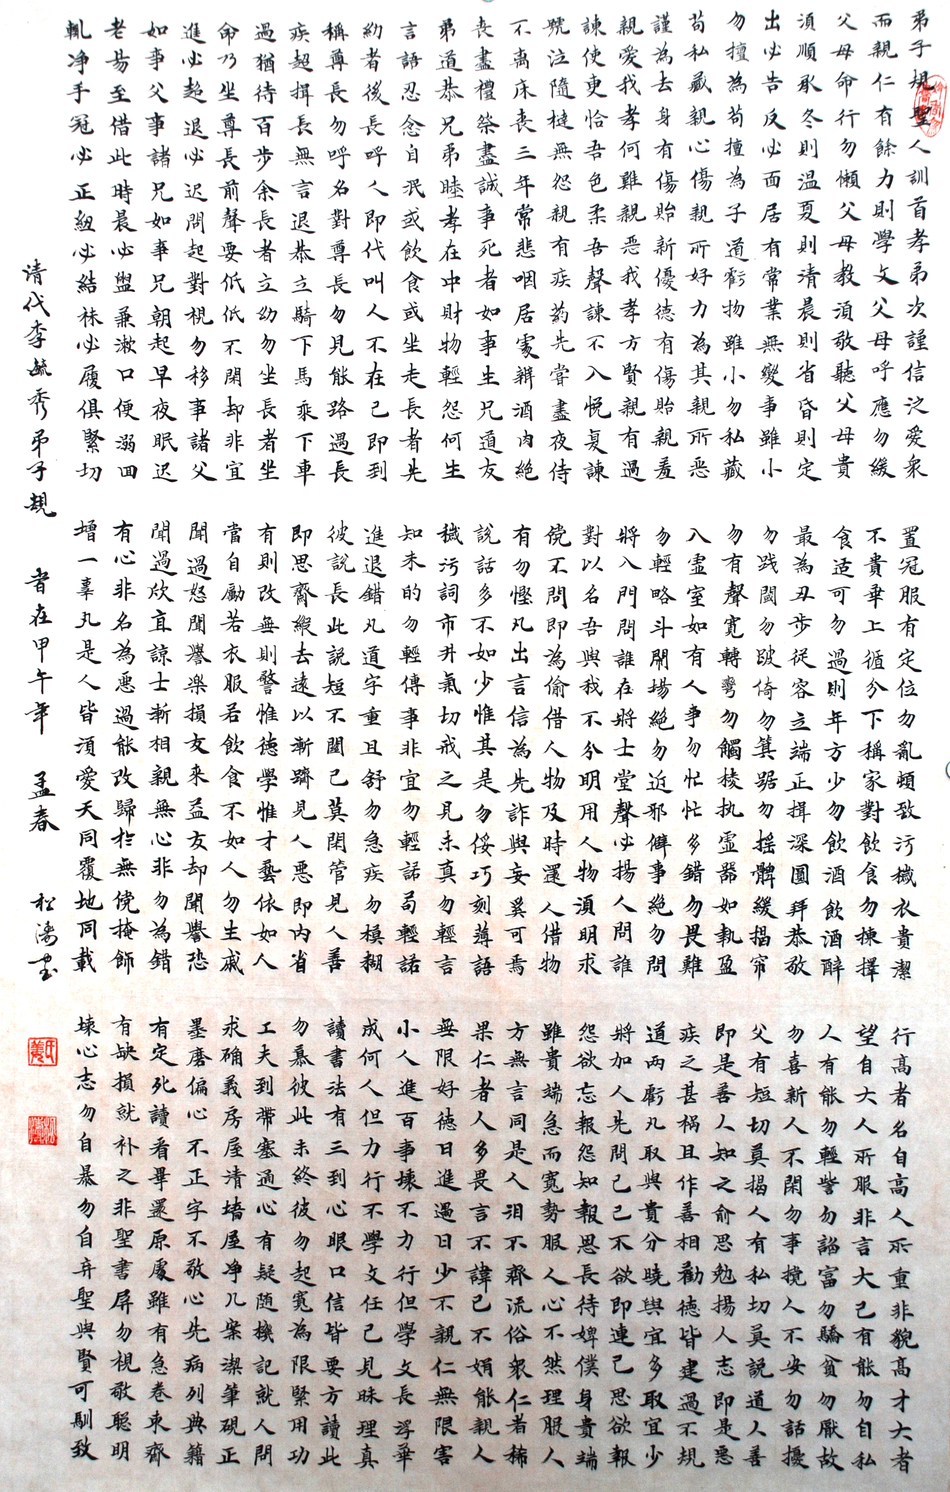 弟子規聖人訓首孝弟次謹信泛愛眾
而親仁有餘力則學文父母呼應勿緩
父母命行勿懶父母教須敬聽父母貴
須順承冬則温夏則清晨則省昏則定
出必告反必面居有常業無變事雖小
勿擅為苟擅為子道虧物雖小勿私藏
苟私藏親心傷親所好力為其親所惡
謹為去身有傷貽新優德有傷貽親羞
親愛我孝何難親惡我孝方賢親有過
諫使更恰吾色柔吾聲諫不入悅复諫
號泣隨撻無怨親有疾药先嘗盡夜侍
不离床喪三年常悲咽居處辯酒肉絕
喪盡禮祭盡誠事死者如事生兄道友
弟道恭兄弟睦孝在中財物輕怨何生
言語忍忿自泯或飲食或坐走長者先
幼者後長呼人即代叫人不在己即到
稱尊長勿呼名對尊長勿見能路遇長
疾趨揖長無言退恭立騎下馬乘下車
過猶待百步余長者立幼勿坐長者坐
命乃坐尊長前聲要低低不聞却非宜
進必趨退必迟問起對視勿移事諸父
如事父事諸兄如事兄朝起早夜眠迟
老易至借此時晨必盥兼漱口便溺回
輒净手冠必正紐必結袜必履俱緊切
置冠服有定位勿亂頓致污穢衣貴潔
不貴華上循分下稱家對飲食勿揀擇
食适可勿過則年方少勿飲酒飲酒醉
最為丑步從容立端正揖深圓拜恭敬
勿践閾勿跛倚勿箕踞勿摇髀緩揭帘
勿有聲寬轉彎勿觸棱执虚器如執盈
入虚室如有人事勿忙忙多錯勿畏難
勿輕略斗鬧場絕勿近邪僻事絕勿問
將入門問誰在將士堂聲必揚人問誰
對以名吾與我不分明用人物須明求
倘不問即為偷借人物及時還人借物
有勿慳凡出言信為先詐與妄奚可焉
說話多不如少惟其是勿佞巧刻薄語
穢污詞市井氣切戒之見未真勿輕言
知未的勿輕傳事非宜勿輕諾苟輕諾
進退錯凡道字重且舒勿急疾勿模糊
彼說長此説短不關己莫閑管見人善
即思齊縱去遠以漸躋見人惡即內省
有則改無則警惟德學惟才藝依如人
當自勵若衣服若飲食不如人勿生戚
聞過怒聞譽樂損友來益友却聞譽恐
聞過欣直諒士漸相親無心非勿為錯
有心非名為惡過能改歸於無倘掩飾
增一辜凡是人皆須愛天同覆地同載
行高者名自高人所重非貌高才大者
望自大人所服非言大己有能勿自私
人有能勿輕訾勿諂富勿驕貧勿厭故
勿喜新人不閑勿事攪人不安勿話擾
父有短切莫揭人有私切莫説道人善
即是善人知之俞思勉揚人志即是惡
疾之甚祸且作善相勸德皆建過不規
道两虧凡取與貴分曉與宜多取宜少
將加人先問己己不欲即連己思欲報
怨欲忘報怨知報思長待婢僕身貴端
雖貴端急而寬勢服人心不然理服人
方無言同是人泪不齊流俗衆仁者稀
果仁者人多畏言不諱己不娟能親人
無限好德日進過日少不親仁無限害
小人進百事壞不力行但學文長浮華
成何人但力行不學文任己見昧理真
讀書法有三到心眼口信皆要方讀此
勿慕彼此未終彼勿起寬為限緊用功
工夫到帶塞通心有疑随機記就人問
求确義房屋清墻屋净几案潔筆硯正
墨磨偏心不正字不敬心先病列典籍
有定死讀看畢還原處雖有急卷束齊
有缺損就补之非聖書屏勿視敬聪明
壞心志勿自暴勿自弃聖與賢可馴致
清代李毓秀弟子規 育在甲午年 孟春 松濤書